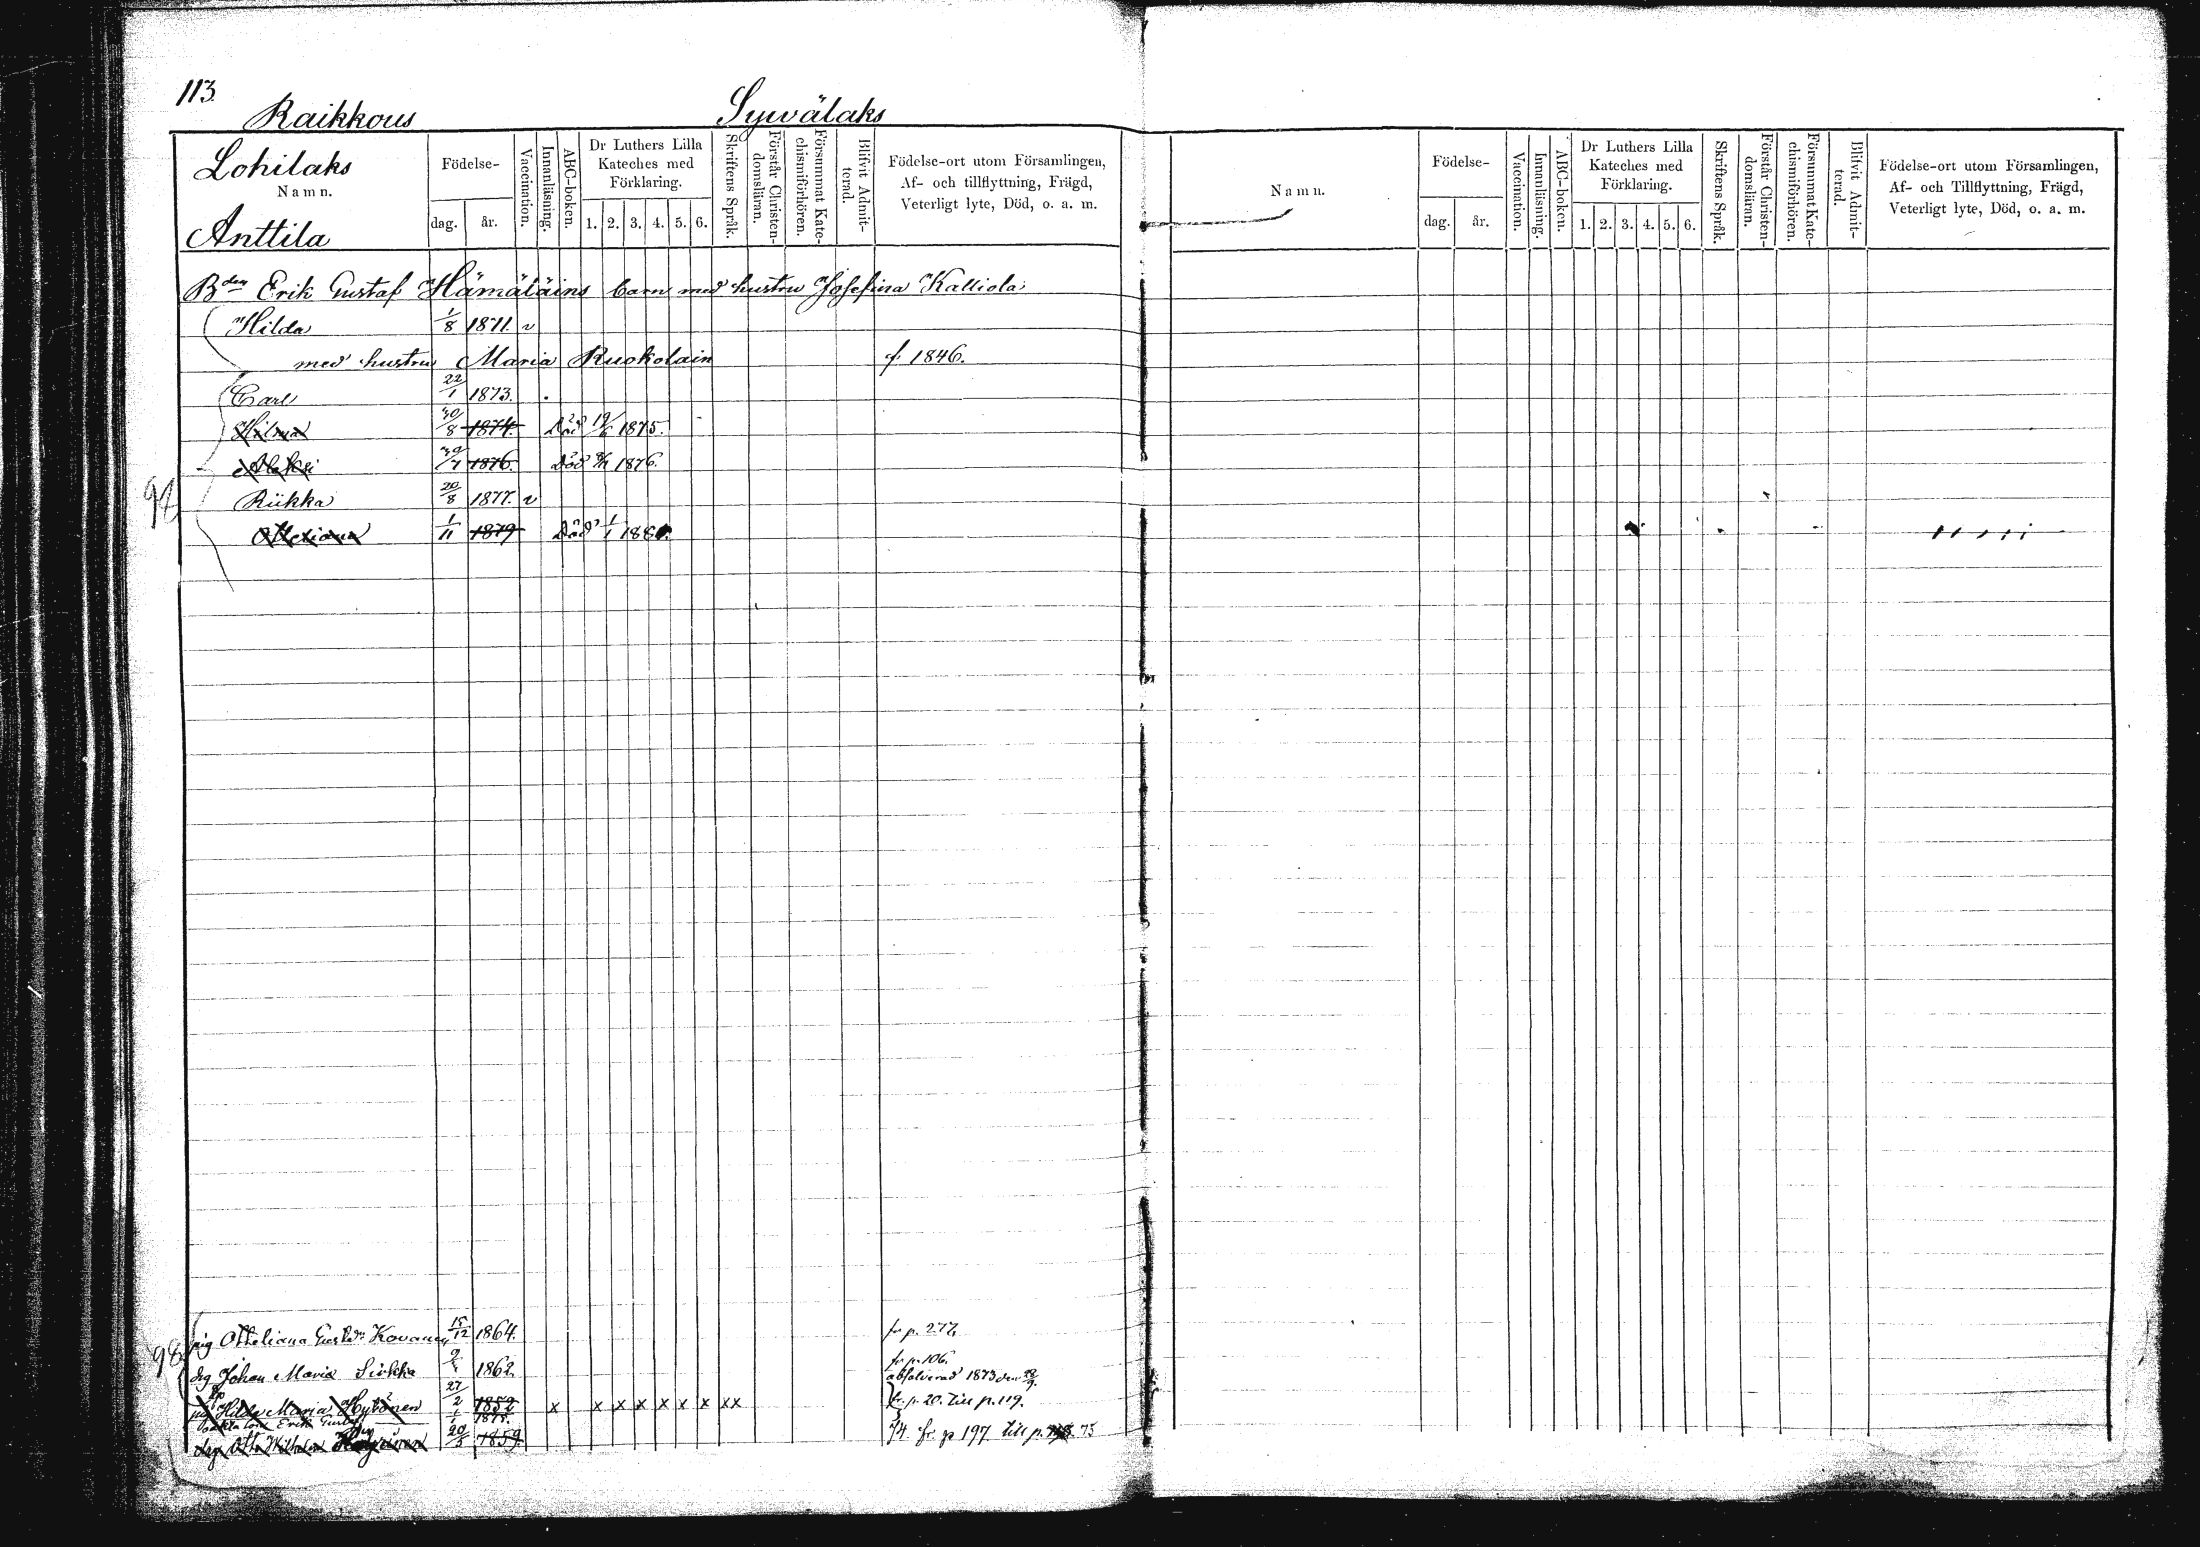 113.
Raikkous Sywälaks
Lohilaks
Namn.
Anttila
Födelse-
dag. år.
Vaccination.
Innanläsning.
ABC-boken.
Dr Luthers Lilla
Kateches med
Förklaring.
1. 2. 3. 4. 5. 6.
Skriftens Språk.
Förstår Christen-
domsläran.
Försummat Kate-
chismiförhören.
Blifvit Admit-
terad.
Födelse-ort utom Församlingen,
Af- och tillflyttning, Frägd,
Veterligt lyte, Död, o. a. m.
Bden Erik Gustaf Hämäläins barn med hustru Josefina Kalliola
Hilda 1/8 1871. v
med hustru Maria Ruokolain f. 1846.
Carl 22/1 1873.
Hilma 30/8 1874. Död 19/6 1875.
Aleksi 1876. Död 1876.
Riikka 20/8 1877. v
Otteliana 1/11 1879 Död 1/1 188
92
98
pig Otteliana Gustdr Kovanen 15/12 1864. fr p. 277.
drg Johan Maria Sirkka 1862. fr p. 106.
absolverad 1873 den
pig Hilda Maria Hytönen 27/2 1852 x x x x x x x x x fr. p. 20. till p. 119.
Erik Gustaf 1875.
drg Otto Wilhelm 20/3 1859. 74 fr. p 197 till p. 75
Namn.
Födelse-
dag. år.
Vaccination.
Innanläsning.
ABC-boken.
Dr Luthers Lilla
Kateches med
Förklaring.
1. 2. 3. 4. 5. 6.
Skriftens Språk.
Förstår Christen-
domsläran.
Försummat Kate-
chismiförhören.
Blifvit Admit-
terad.
Födelse-ort utom Församlingen,
Af- och Tillflyttning, Frägd,
Veterligt lyte, Död, o. a. m.